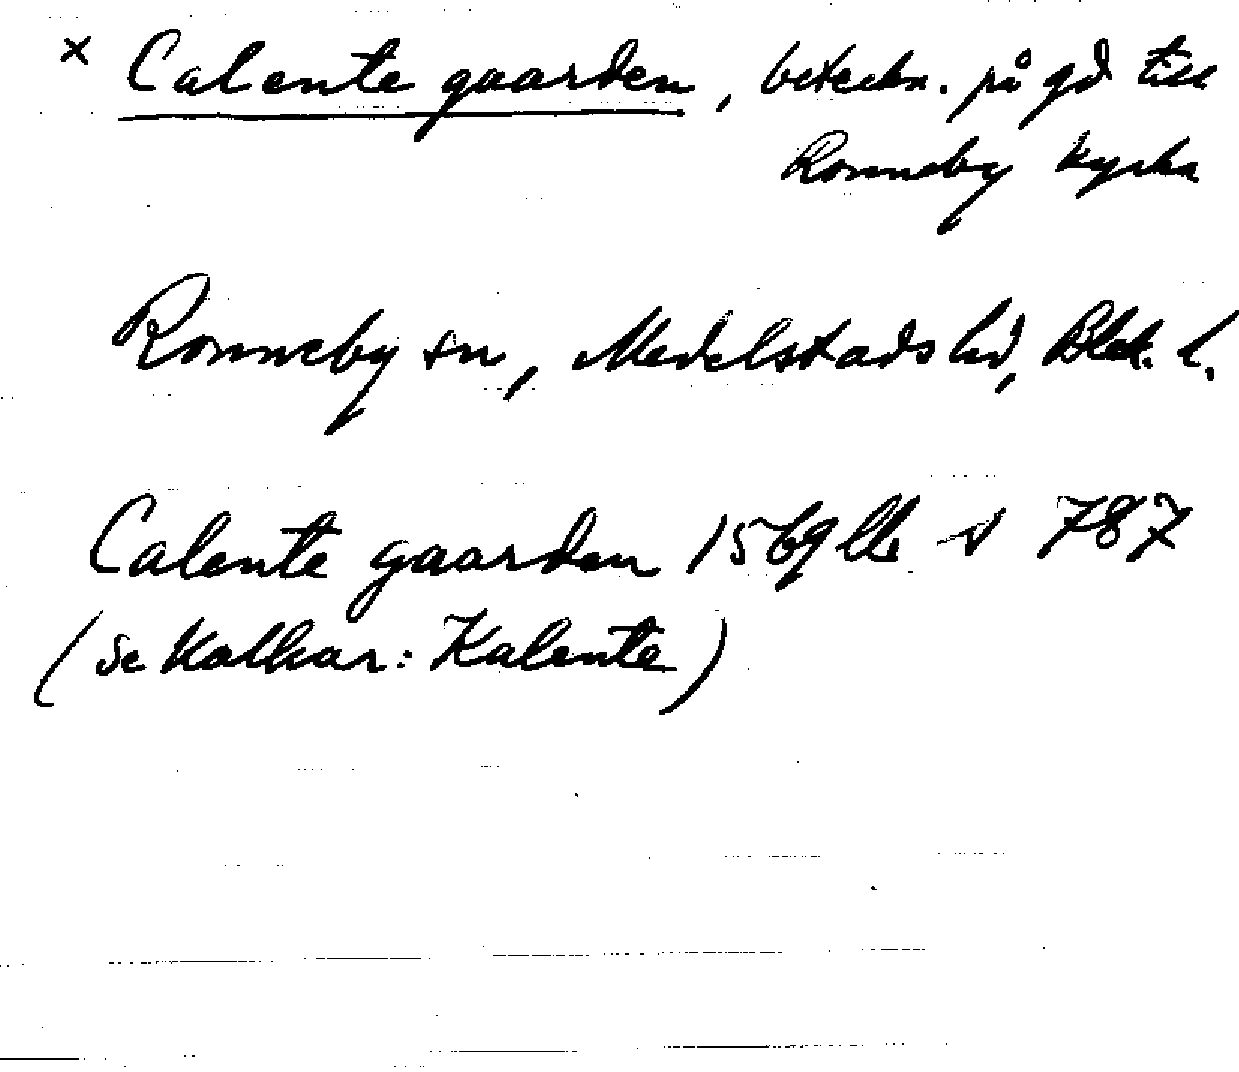 × Calente gaarden, beteckn. på gd till
Ronneby kyrka
Ronneby sn, Medelstads hd, Blek. l.
Calente gaarden 1569 Lb s 787
(Se Kalkar: Kalente)